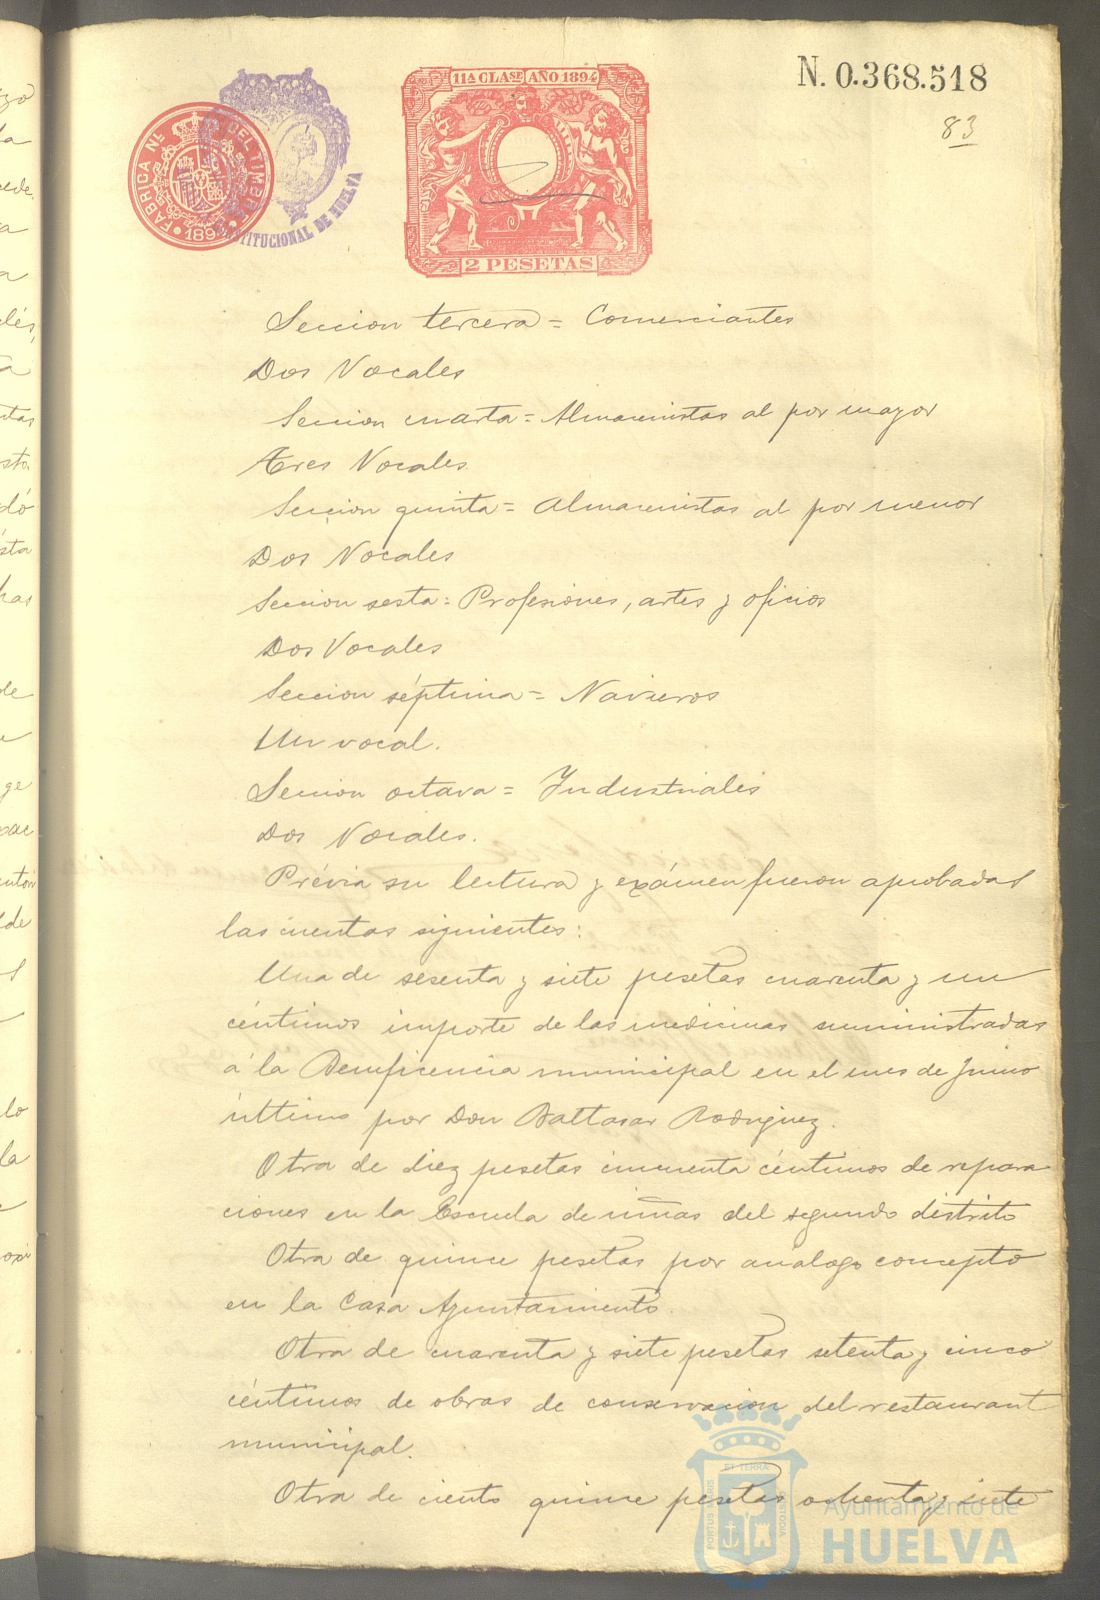 11ª CLASE AÑO 1894
N. 0.368.518
83
FABRICA NL DEL TIMBRE
CONSTITUCIONAL DE HUELVA
2 PESETAS
Seccion tercera = Comerciantes
Dos Vocales
Seccion cuarta = Almacenistas al por mayor
Tres Vocales
Seccion quinta = Almacenistas al por menor
Dos Vocales
Seccion sesta = Profesiones, artes y oficios
Dos Vocales
Seccion séptima = Navieros
Un vocal.
Seccion octava = Industriales
Dos Vocales.
Prévia su lectura y exámen fueron aprobadas
las cuentas siguientes:
Una de sesenta y siete pesetas cuarenta y un
céntimos importe de las medicinas suministradas
á la Beneficencia municipal en el mes de Junio
último por Don Baltasar Rodriguez.
Otra de diez pesetas cincuenta céntimos de repara
ciones en la Escuela de niñas del segundo distrito
Otra de quince pesetas por análogo concepto
en la Casa Ayuntamiento.
Otra de cuarenta y siete pesetas setenta y cinco
céntimos de obras de conservacion del restaurant
municipal.
Otra de ciento quince pesetas ochenta y siete
Ayuntamiento de
HUELVA